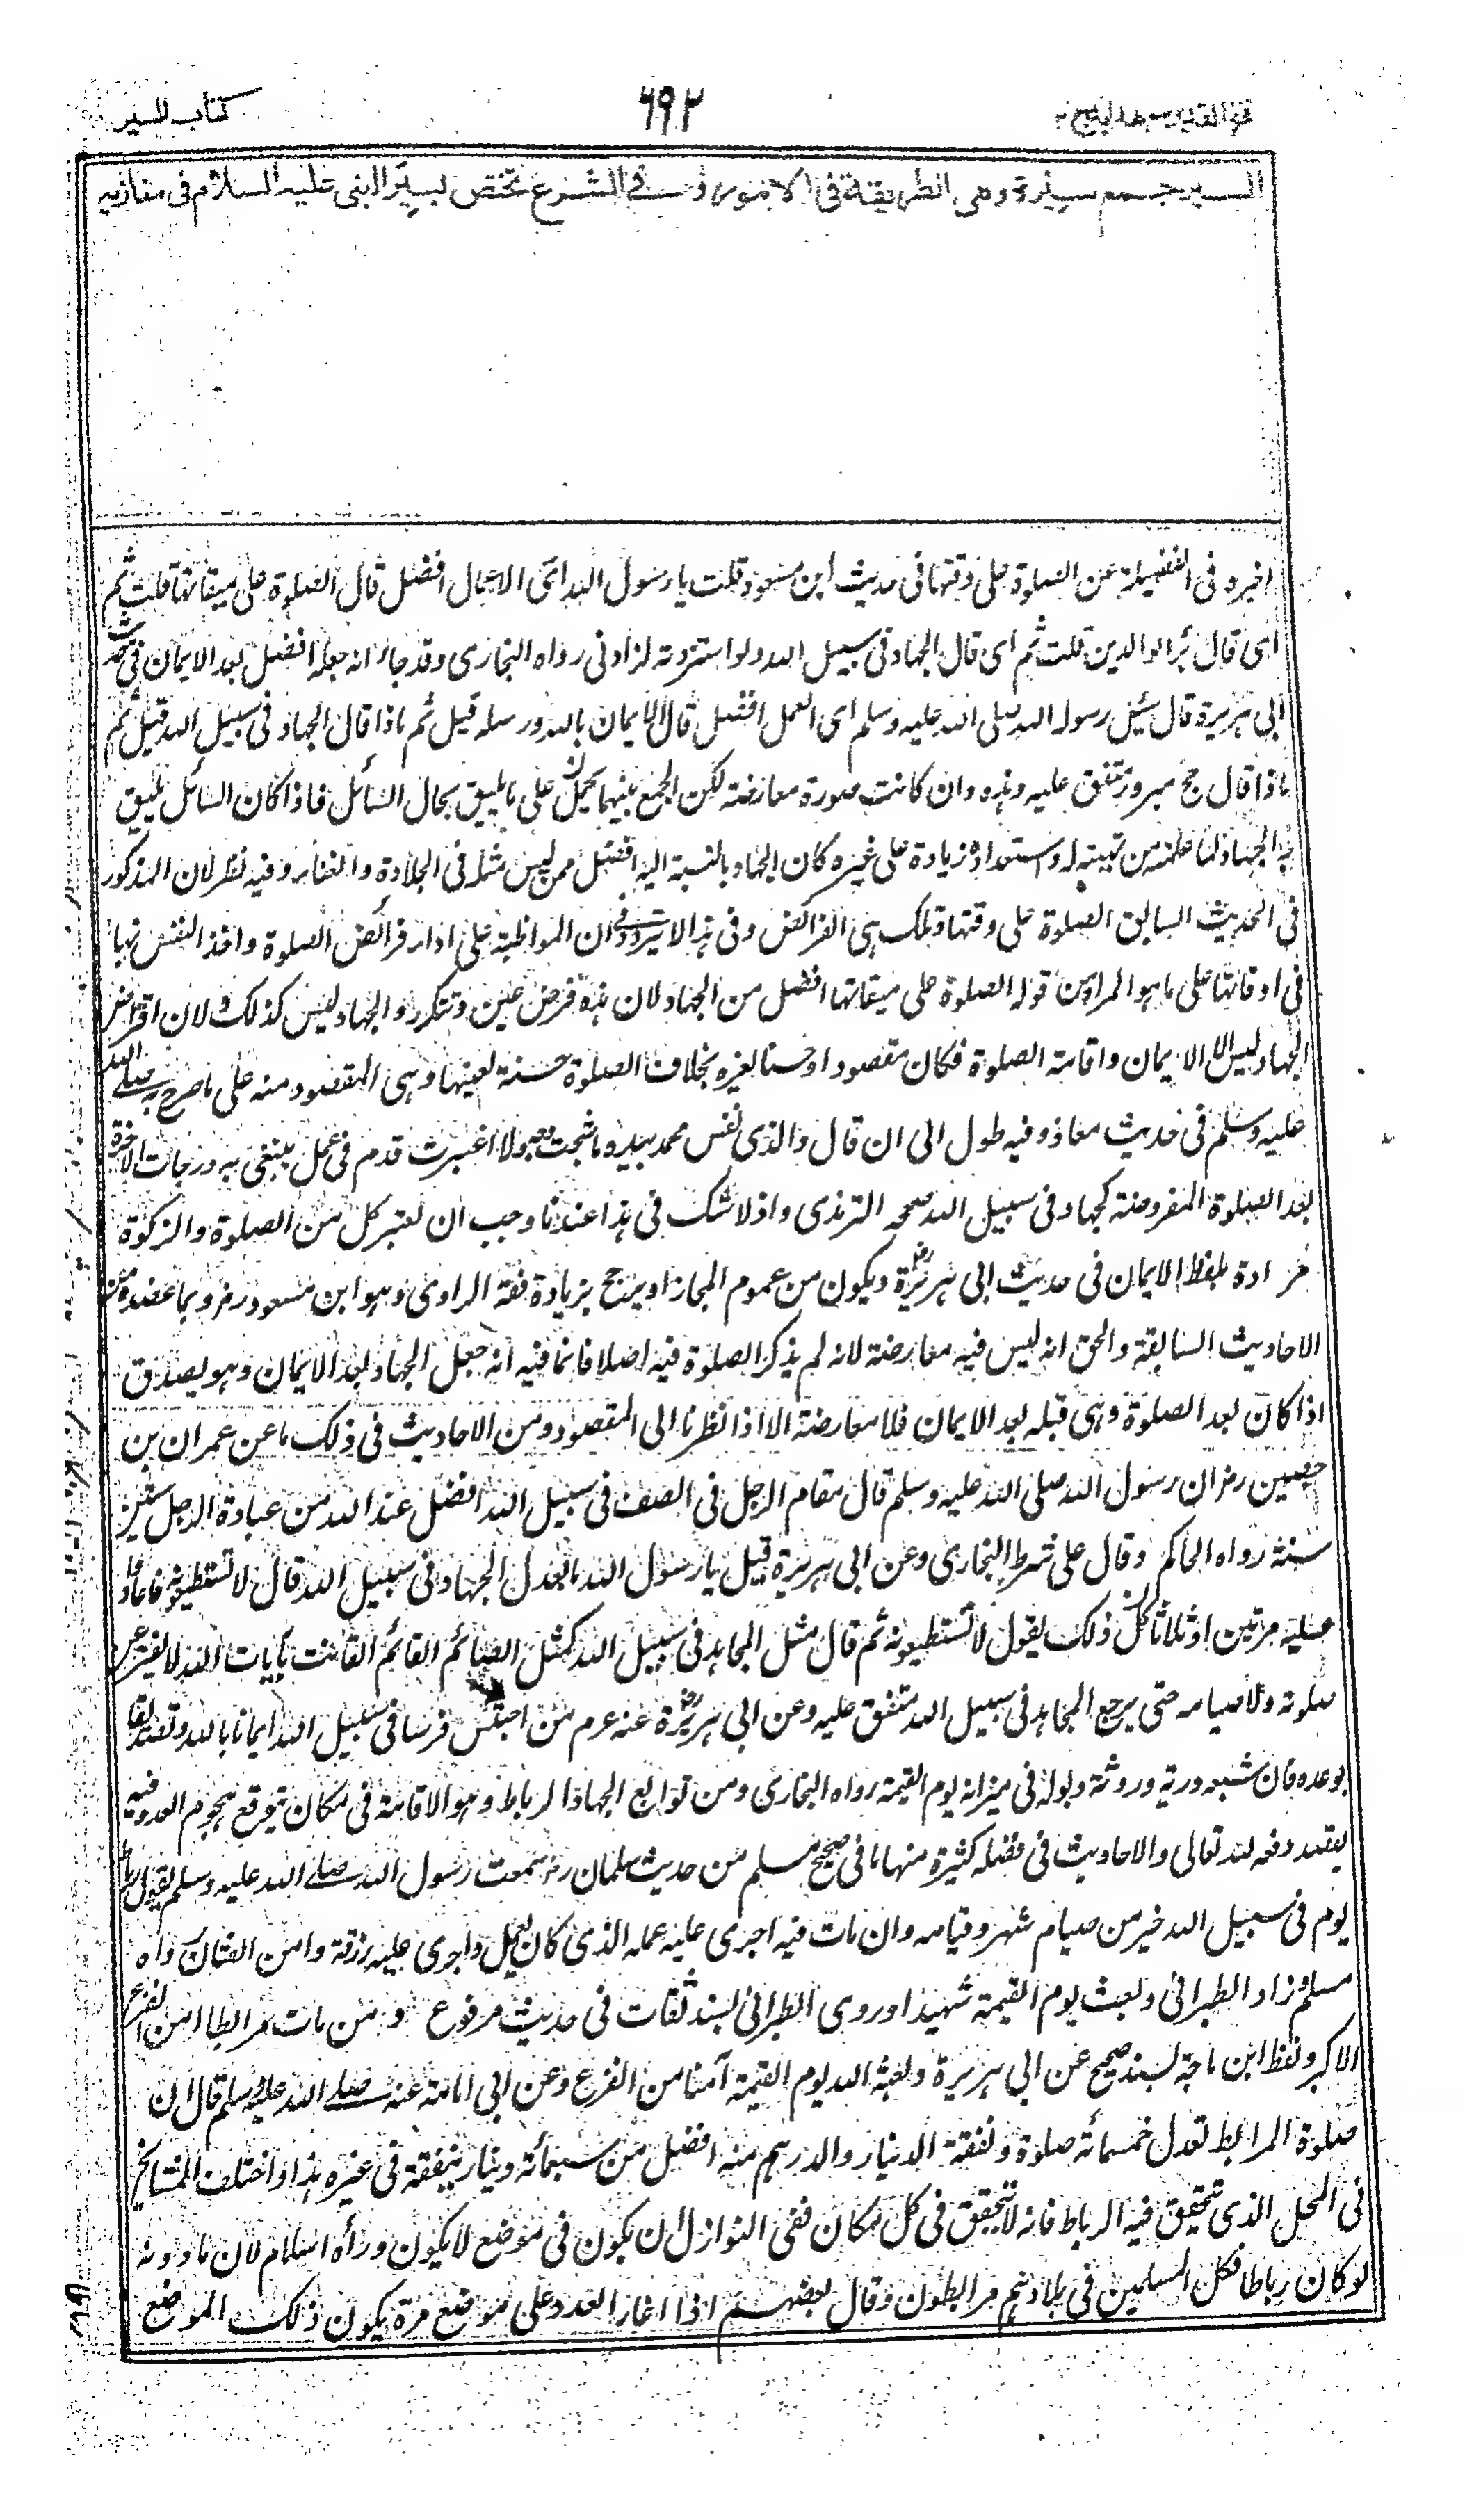 فتح القدير مع هداية ج ٢
٦٩٢
كتاب السير
السير جمع سيرة وهى الطريقة فى الامور و فى الشرع تختص بسير النبى عليه السلام فى مغازيه
اخيره فى الفضيلة عن الصلوة على وقتها فى حديث ابن مسعود قلت يا رسول الله اى الاعمال افضل قال الصلوة على ميقاتها قلت ثم
اى قال بر الوالدين قلت ثم اى قال الجهاد فى سبيل الله ولو استزدته لزادنى رواه البخارى وقد جاء انه جعله افضل بعد الايمان فى حديث
ابى هريرة قال سئل رسول الله صلى الله عليه وسلم اى العمل افضل قال الايمان بالله ورسله قيل ثم ماذا قال الجهاد فى سبيل الله قيل ثم
ماذا قال حج مبرور متفق عليه وهذه وان كانت صورة معارضة لكن الجمع بينهما يحمل كل على ما يليق بحال السائل فاذا كان السائل يليق
به الجهاد لما علمه من تهيئته له واستعداده زيادة على غيره كان الجهاد بالنسبة اليه افضل ممن ليس مثله فى الجلادة والغناء وفيه نظر لان المذكور
فى الحديث السابق الصلوة على وقتها وتلك هى الفرائض وفى هذا لا يتردد فى ان المواظبة على اداء فرائض الصلوة واخذ النفس بها
فى اوقاتها على ما هو المراد من قوله الصلوة على ميقاتها افضل من الجهاد لان هذه فرض عين وتتكرر والجهاد ليس كذلك ولان افتراض
الجهاد ليس الا للايمان واقامة الصلوة فكان مقصودا وحسنا لغيره بخلاف الصلوة حسنة لعينها وهى المقصود منه على ما صرح به صلى الله
عليه وسلم فى حديث معاذ وفيه طول الى ان قال والذى نفس محمد بيده ما شحب وجه ولا اغبرت قدم فى عمل يبتغى به درجات الاخرة
بعد الصلوة المفروضة كجهاد فى سبيل الله صححه الترمذى واذ لا شك فى هذا عندنا وجب ان يعتبر كل من الصلوة والزكوة
مرادة بلفظ الايمان فى حديث ابى هريرة رض ويكون من عموم المجاز او يرجح بزيادة فقه الراوى وهو ابن مسعود رض وبما عضده من
الاحاديث السابقة والحق انه ليس فيه معارضة لانه لم يذكر الصلوة فيه اصلا فانما فيه انه جعل الجهاد بعد الايمان وهو يصدق
اذا كان بعد الصلوة وهى قبله بعد الايمان فلا معارضة الا اذا نظرنا الى المقصود ومن الاحاديث فى ذلك ما عن عمران بن
حصين رض ان رسول الله صلى الله عليه وسلم قال مقام الرجل فى الصف فى سبيل الله افضل عند الله من عبادة الرجل ستين
سنة رواه الحاكم وقال على شرط البخارى وعن ابى هريرة قيل يا رسول الله ما يعدل الجهاد فى سبيل الله قال لا تستطيعونه فاعادوا
عليه مرتين او ثلاثا كل ذلك يقول لا تستطيعونه ثم قال مثل المجاهد فى سبيل الله كمثل الصائم القائم القانت بآيات الله لا يفتر عن
صلوته ولا صيامه حتى يرجع المجاهد فى سبيل الله متفق عليه وعن ابى هريرة رض عنه عم من احتبس فرسا فى سبيل الله ايمانا بالله وتصديقا
بوعده فان شبعه وريه وروثه وبوله فى ميزانه يوم القيمة رواه البخارى ومن توابع الجهاد الرباط وهو الاقامة فى مكان يتوقع هجوم العدو فيه
لقصد دفعه لله تعالى والاحاديث فى فضله كثيرة منها ما فى صحيح مسلم من حديث سلمان رض سمعت رسول الله صلى الله عليه وسلم يقول رباط
يوم فى سبيل الله خير من صيام شهر وقيامه وان مات فيه اجرى عليه عمله الذى كان يعمل واجرى عليه رزقه وامن الفتان رواه
مسلم زاد الطبرانى وبعث يوم القيمة شهيدا وروى الطبرانى بسند ثقات فى حديث مرفوع و من مات مرابطا امن الفزع
الاكبر ولفظ ابن ماجة بسند صحيح عن ابى هريرة وبعثه الله يوم القيمة آمنا من الفزع وعن ابى امامة عنه صلى الله عليه وسلم قال ان
صلوة المرابط تعدل خمسمائة صلوة ونفقة الدينار والدرهم منه افضل من سبعمائة دينار ينفقه فى غيره هذا واختلف المشايخ
فى المحل الذى يتحقق فيه الرباط فانه لا يتحقق فى كل مكان ففى النوازل ان يكون فى موضع لا يكون وراءه اسلام لان ما دونه
لو كان رباطا فكل المسلمين فى بلادهم مرابطون وقال بعضهم اذا اغار العدو على موضع مرة يكون ذلك الموضع